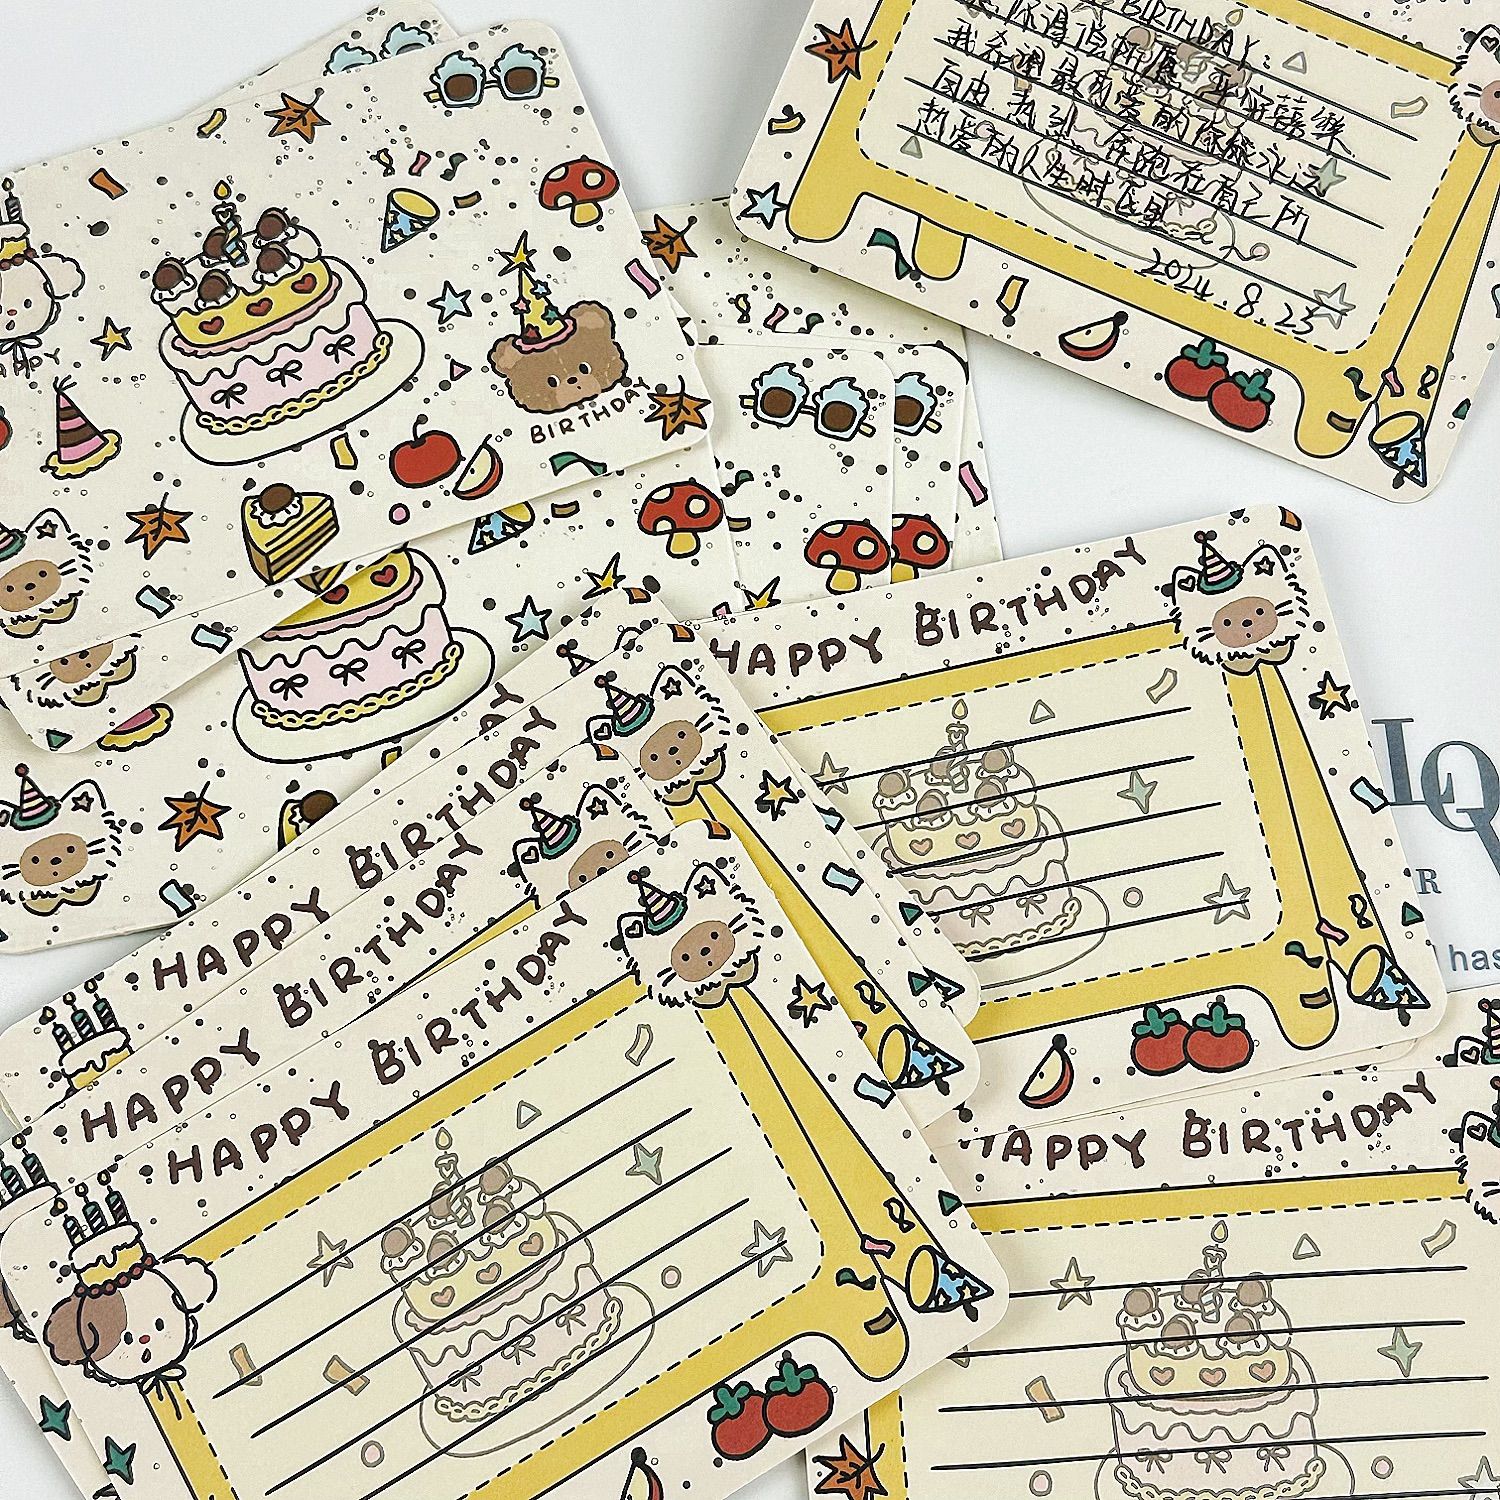 BIRTHDAY:
你得偿所愿 平安喜樂
我希望最可爱的你能永远
自由 热烈 奔跑在自己所
热爱的人生时区里
2024.8.25
BIRTHDAY
HAPPY BIRTHDAY
HAPPY BIRTHDAY
HAPPY BIRTHDAY
HAPPY BIRTHDAY
HAPPY BIRTHDAY
LQ
R
has